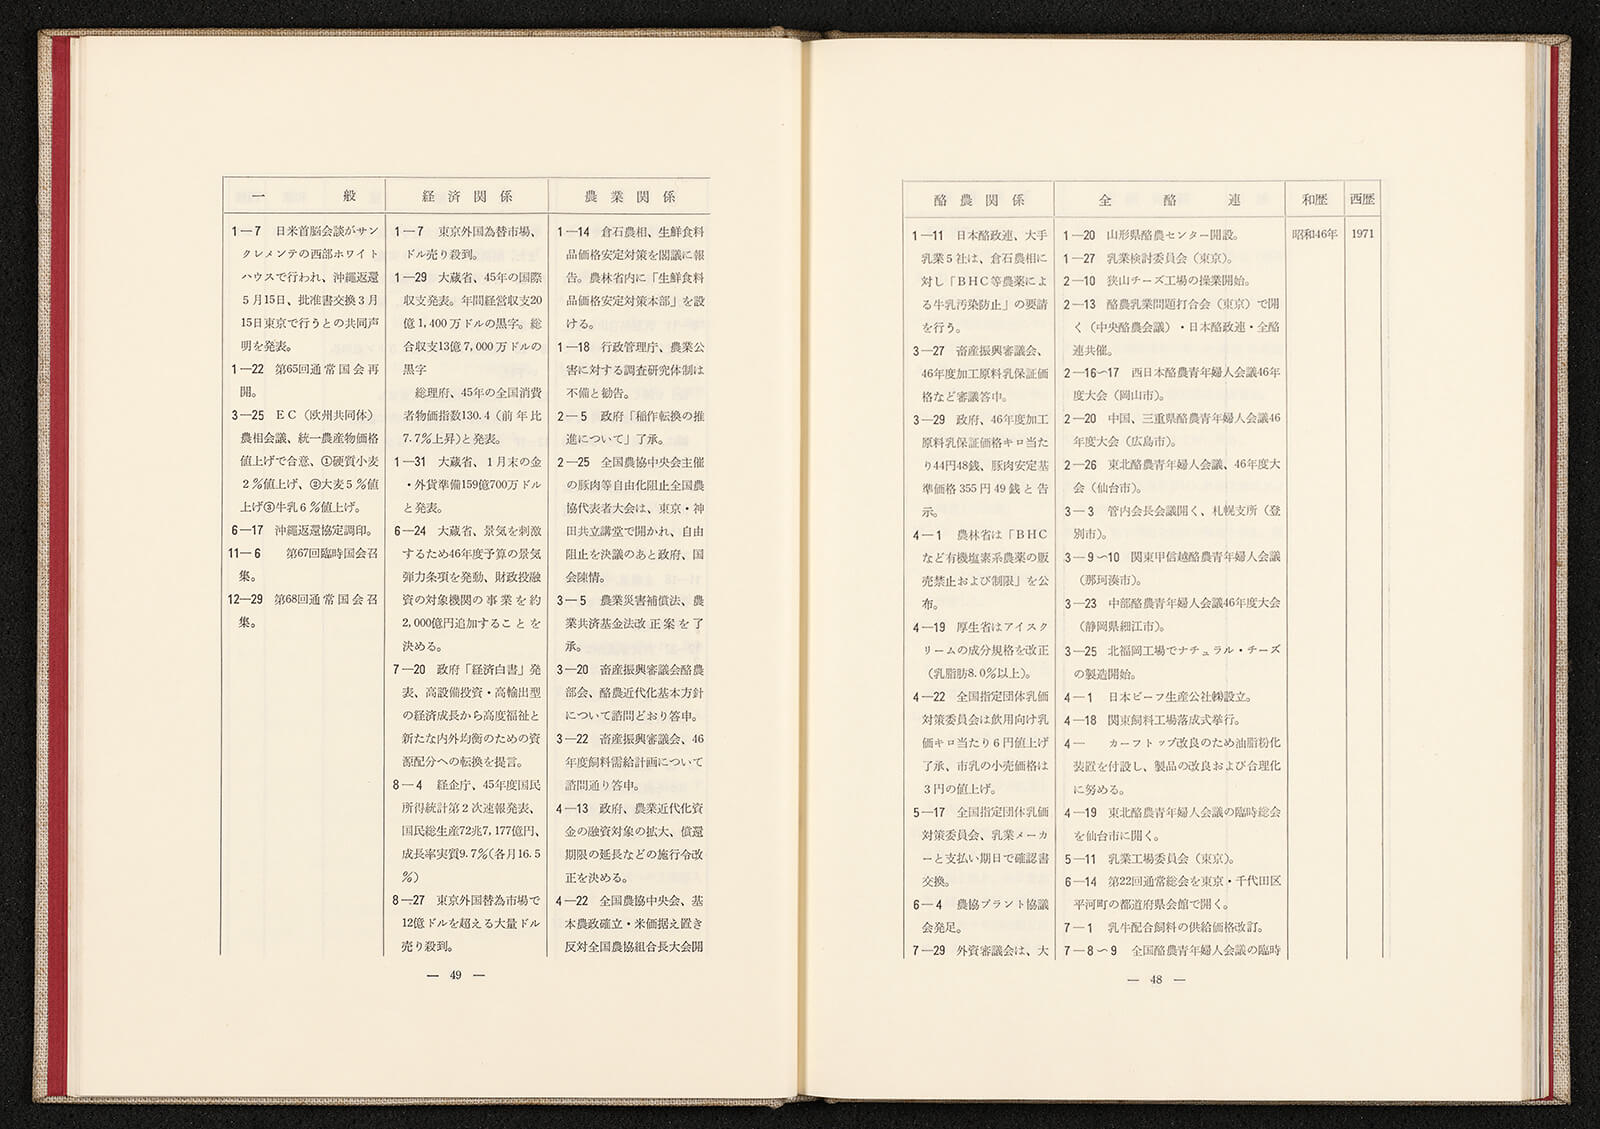 一般
1—7 日米首脳会談がサン
クレメンテの西部ホワイト
ハウスで行われ、沖縄返還
5月15日、批准書交換3月
15日東京で行うとの共同声
明を発表。
1—22 第65回通常国会再
開。
3—25 EC（欧州共同体）
農相会議、統一農産物価格
値上げで合意、①硬質小麦
2％値上げ、②大麦5％値
上げ③牛乳6％値上げ。
6—17 沖縄返還協定調印。
11—6 第67回臨時国会召
集。
12—29 第68回通常国会召
集。
経済関係
1—7 東京外国為替市場、
ドル売り殺到。
1—29 大蔵省、45年の国際
収支発表。年間経営収支20
億1,400万ドルの黒字。総
合収支13億7,000万ドルの
黒字
総理府、45年の全国消費
者物価指数130.4（前年比
7.7％上昇）と発表。
1—31 大蔵省、1月末の金
・外貨準備159億700万ドル
と発表。
6—24 大蔵省、景気を刺激
するため46年度予算の景気
弾力条項を発動、財政投融
資の対象機関の事業を約
2,000億円追加することを
決める。
7—20 政府「経済白書」発
表、高設備投資・高輸出型
の経済成長から高度福祉と
新たな内外均衡のための資
源配分への転換を提言。
8—4 経企庁、45年度国民
所得統計第2次速報発表、
国民総生産72兆7,177億円、
成長率実質9.7％（各月16.5
％）
8—27 東京外国替為市場で
12億ドルを超える大量ドル
売り殺到。
農業関係
1—14 倉石農相、生鮮食料
品価格安定対策を閣議に報
告。農林省内に「生鮮食料
品価格安定対策本部」を設
ける。
1—18 行政管理庁、農業公
害に対する調査研究体制は
不備と勧告。
2—5 政府「稲作転換の推
進について」了承。
2—25 全国農協中央会主催
の豚肉等自由化阻止全国農
協代表者大会は、東京・神
田共立講堂で開かれ、自由
阻止を決議のあと政府、国
会陳情。
3—5 農業災害補償法、農
業共済基金法改正案を了
承。
3—20 畜産振興審議会酪農
部会、酪農近代化基本方針
について諮問どおり答申。
3—22 畜産振興審議会、46
年度飼料需給計画について
諮問通り答申。
4—13 政府、農業近代化資
金の融資対象の拡大、償還
期限の延長などの施行令改
正を決める。
4—22 全国農協中央会、基
本農政確立・米価据え置き
反対全国農協組合長大会開
— 49 —
酪農関係
1—11 日本酪政連、大手
乳業5社は、倉石農相に
対し「BHC等農薬によ
る牛乳汚染防止」の要請
を行う。
3—27 畜産振興審議会、
46年度加工原料乳保証価
格など審議答申。
3—29 政府、46年度加工
原料乳保証価格キロ当た
り44円48銭、豚肉安定基
準価格355円49銭と告
示。
4—1 農林省は「BHC
など有機塩素系農薬の販
売禁止および制限」を公
布。
4—19 厚生省はアイスク
リームの成分規格を改正
（乳脂肪8.0％以上）。
4—22 全国指定団体乳価
対策委員会は飲用向け乳
価キロ当たり6円値上げ
了承、市乳の小売価格は
3円の値上げ。
5—17 全国指定団体乳価
対策委員会、乳業メーカ
ーと支払い期日で確認書
交換。
6—4 農協プラント協議
会発足。
7—29 外資審議会は、大
全酪連
1—20 山形県酪農センター開設。
1—27 乳業検討委員会（東京）。
2—10 狭山チーズ工場の操業開始。
2—13 酪農乳業問題打合会（東京）で開
く（中央酪農会議）・日本酪政連・全酪
連共催。
2—16〜17 西日本酪農青年婦人会議46年
度大会（岡山市）。
2—20 中国、三重県酪農青年婦人会議46
年度大会（広島市）。
2—26 東北酪農青年婦人会議、46年度大
会（仙台市）。
3—3 管内会長会議開く、札幌支所（登
別市）。
3—9〜10 関東甲信越酪農青年婦人会議
（那珂湊市）。
3—23 中部酪農青年婦人会議46年度大会
（静岡県細江市）。
3—25 北福岡工場でナチュラル・チーズ
の製造開始。
4—1 日本ビーフ生産公社㈱設立。
4—18 関東飼料工場落成式挙行。
4— カーフトップ改良のため油脂粉化
装置を付設し、製品の改良および合理化
に努める。
4—19 東北酪農青年婦人会議の臨時総会
を仙台市に開く。
5—11 乳業工場委員会（東京）。
6—14 第22回通常総会を東京・千代田区
平河町の都道府県会館で開く。
7—1 乳牛配合飼料の供給価格改訂。
7—8〜9 全国酪農青年婦人会議の臨時
和歴
昭和46年
西歴
1971
— 48 —